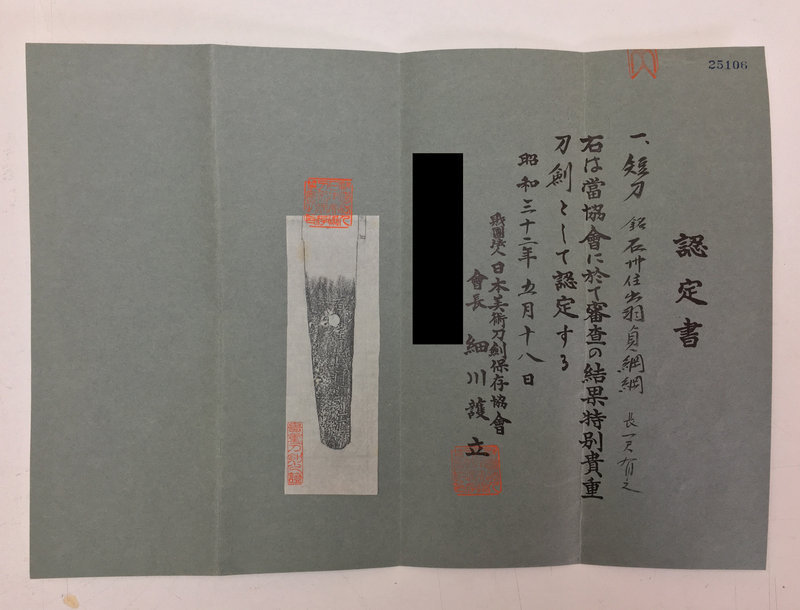 25106
認定書
一、短刀 銘 石州住出羽貞綱 長一尺有之
右は當協會に於て審査の結果特別貴重
刀劍として認定する
昭和三十二年五月十八日
財團法人日本美術刀劍保存協會
會長 細川護立